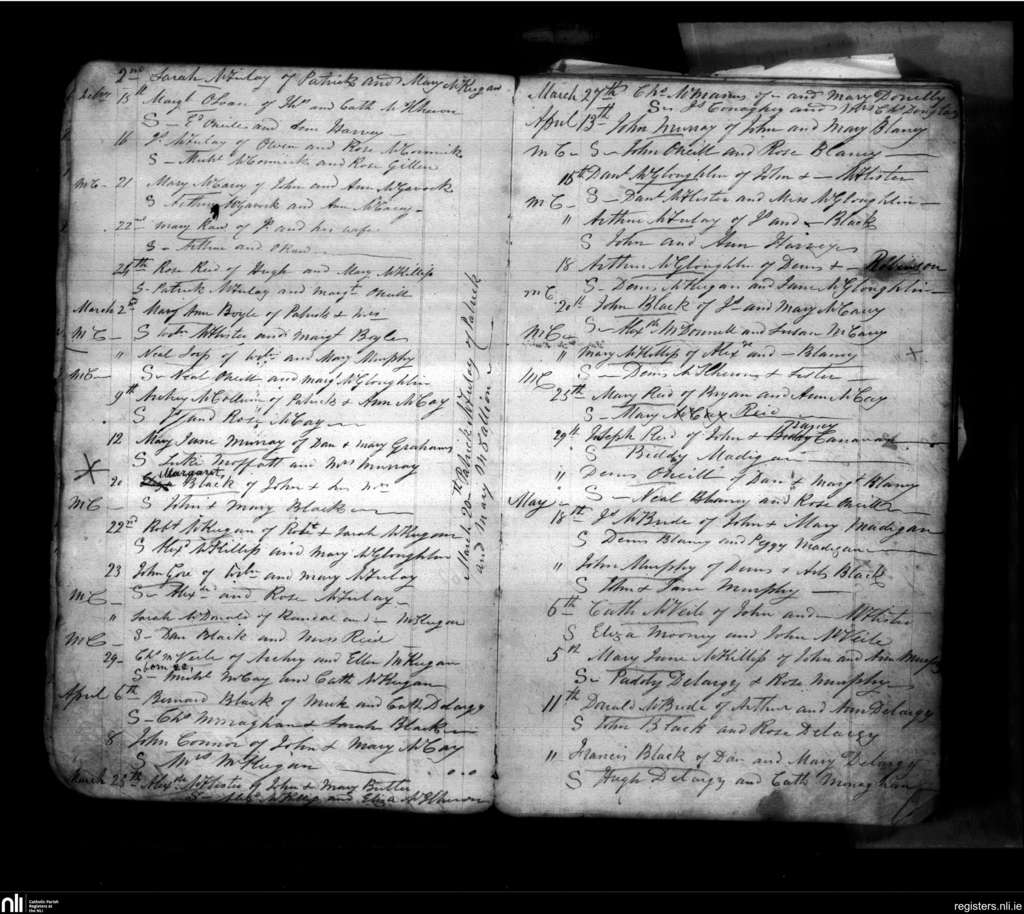 2nd Sarah McAulay of Patrick and Mary McKeegan
15th Margt O'Loan of Thos and Cath McElheron
S and Harvey
16 Js McAulay of Owen and Rose McCormick
S - Michl McCormick and Rose Gillen
McC - 21 Mary McCarey of John and Ann McGavock
S Arthur McGavock and Ann McCarey -
22nd Mary of and his wife
S - Arthur and
24th Rose Reid of Hugh and Mary McKillip
S - Patrick McAulay and Margt Oneill
March 2nd Mary Ann Boyle of Patrick & Mrs
McC - S Wm McAlister and Margt Boyle
" Neal of Wm and Mary Murphy
McC - S - Neal Oneill and Margt McGloughlin
9th Archey McCollum of Patrick & Ann McCay
S - Js and Rose McCay
12 Mary Jane Murray of Dan & Mary Graham
S Luke Moffatt and Mrs Murray
Margaret
20 Black of John & his Mrs
McC - S John & Mary Black
22nd Robt McKeegan of Robt & Sarah McKeegan
S Alexr McKillip and Mary McGloughlin
23 John Gore of Wm and Mary McAulay
McC - S - Alexr and Rose McAulay -
" Sarah McDonald of Randal and - McKeegan
McC - S - Dan Black and Mrs Reid
29 - Chs McVeile of Archy and Ellen McKeegan
born 22
S - Michl McCay and Cath McKeegan
April 6th Bernard Black of Mick and Cath Delargy
S - Chs Monaghan & Sarah Black
8 John Connor of John & Mary McCay
S Mrs McKeegan
March 25th Alexr McAlister of John & Mary Butler
S - and Eliza McElheron
March 20th Patrick McAulay of Patrick
and Mary McFallion
March 27th Chs McManus of - and Mary Donelly
S - Js Conaghy and Mrs Chs Douglas
April 13th John Murray of John and Mary Blaney
McC - S - John Oneill and Rose Blaney
15th Danl McGloughlin of John & - McAlister
McC - S - Danl McAlister and Miss McGloughlin -
" Arthur McAulay of Js and - Black
S John and Ann Harvey
18 Arthur McGloughlin of Denis & - Robinson
McC S - Denis McKeegan and Jane McGloughlin -
20th John Black of Js and Mary McCarry
McC - S - Alexr McDonnell and Susan McCarry
" Mary McKillip of Alexr and - Blaney
McC S - Denis McElheron & Sister -
25th Mary Reid of Bryan and Ann McCay
S - Mary Reid
Nancy
29th Joseph Reid of John &
S Biddy Madigan
" Denis Oneill of Dan & Margt Blaney
May - S - Neal Blaney and Rose Oneill
18th Js McBride of John & Mary Madigan
S Denis Blaney and Peggy Madigan
" John Murphy of Denis & Black
S John & Jane Murphy
6th Cath McVeile of John and - McAlister
S Eliza Mooney and John McVeile
5th Mary Jane McKillip of John and Ann Murphy
S - Paddy Delargy & Rose Murphy
11th Donald McBride of Arthur and Ann Delargy
S John Black and Rose Delargy
" Francis Black of Dan and Mary Delargy
S Hugh Delargy and Cath Monaghan
nli
Catholic Parish
Registers at
the NLI
registers.nli.ie